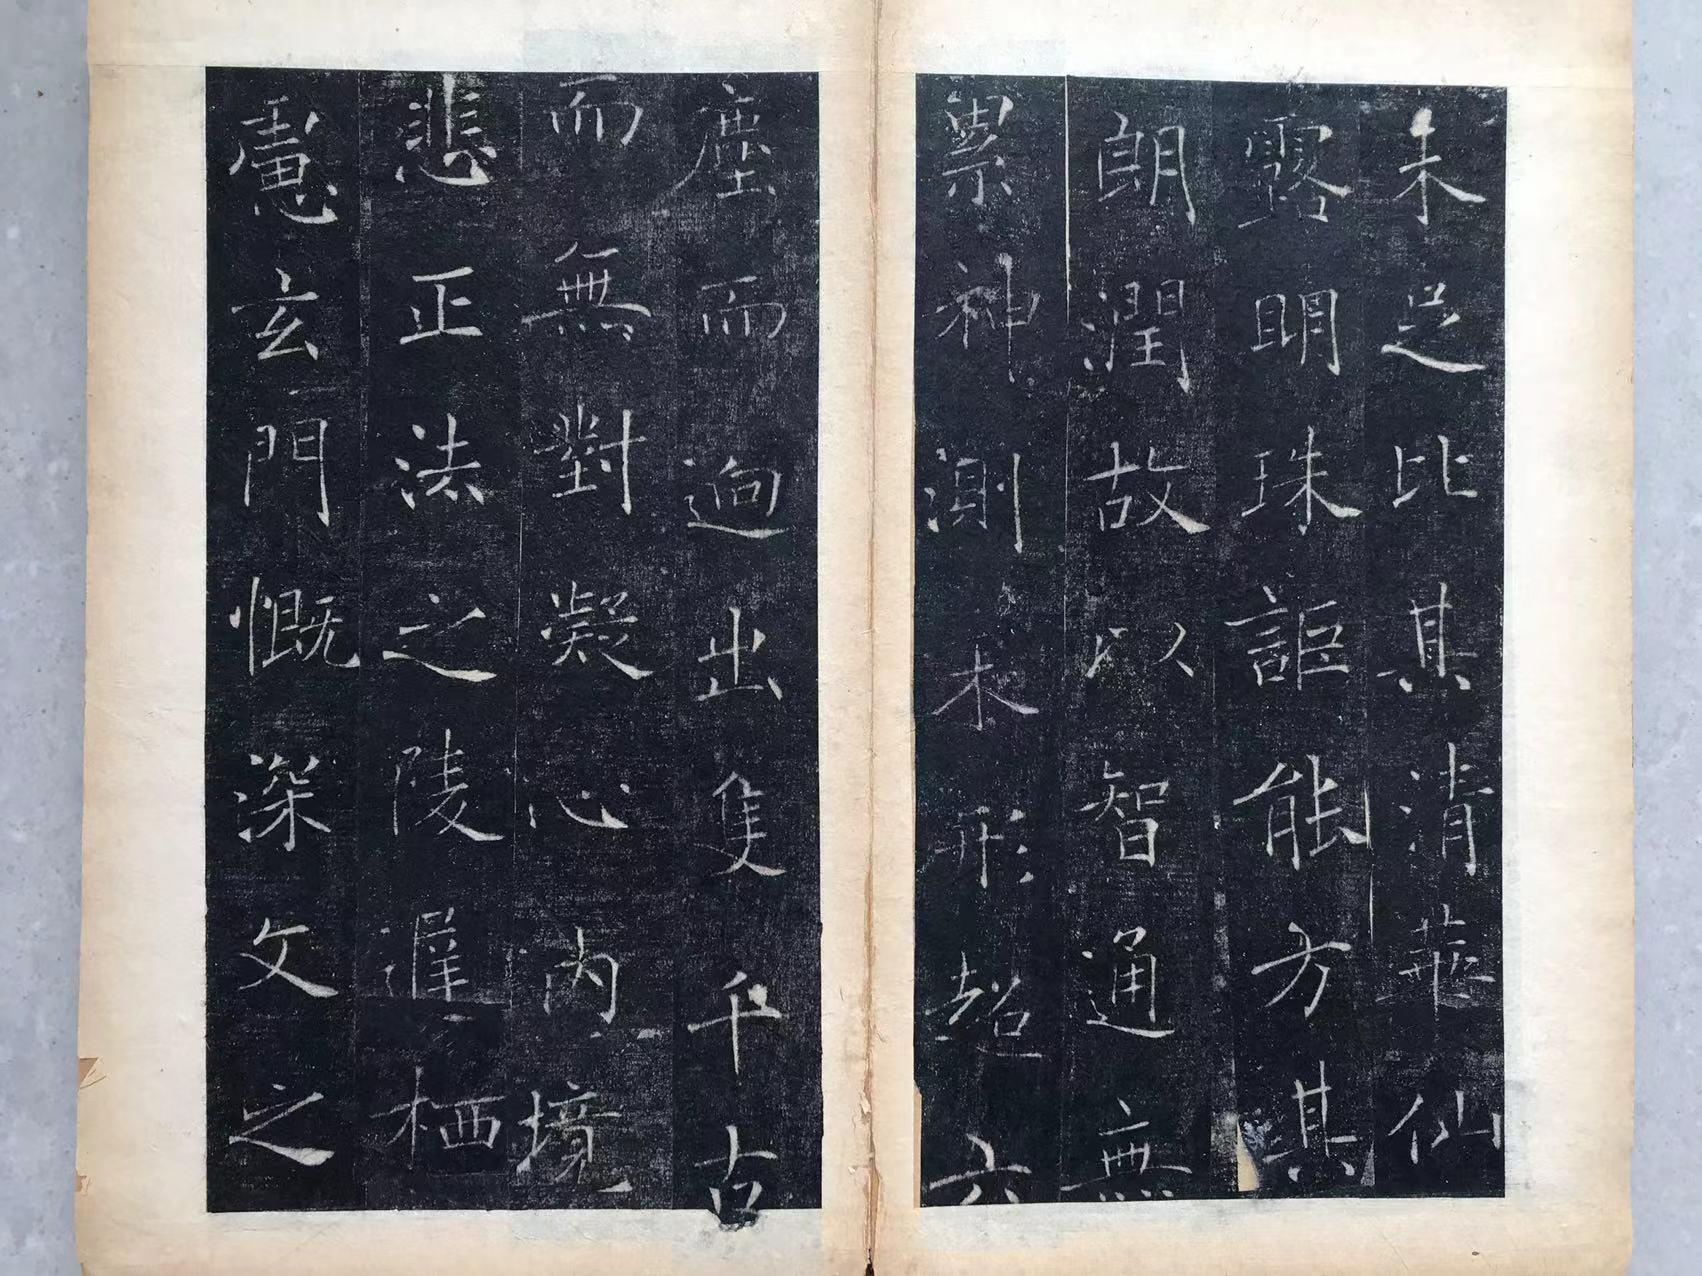 未足比其清華仙
露明珠詎能方其
朗潤故以智通無
累神測未形超六
塵而逈出隻千古
而無對凝心內境
悲正法之陵遲栖
慮玄門慨深文之